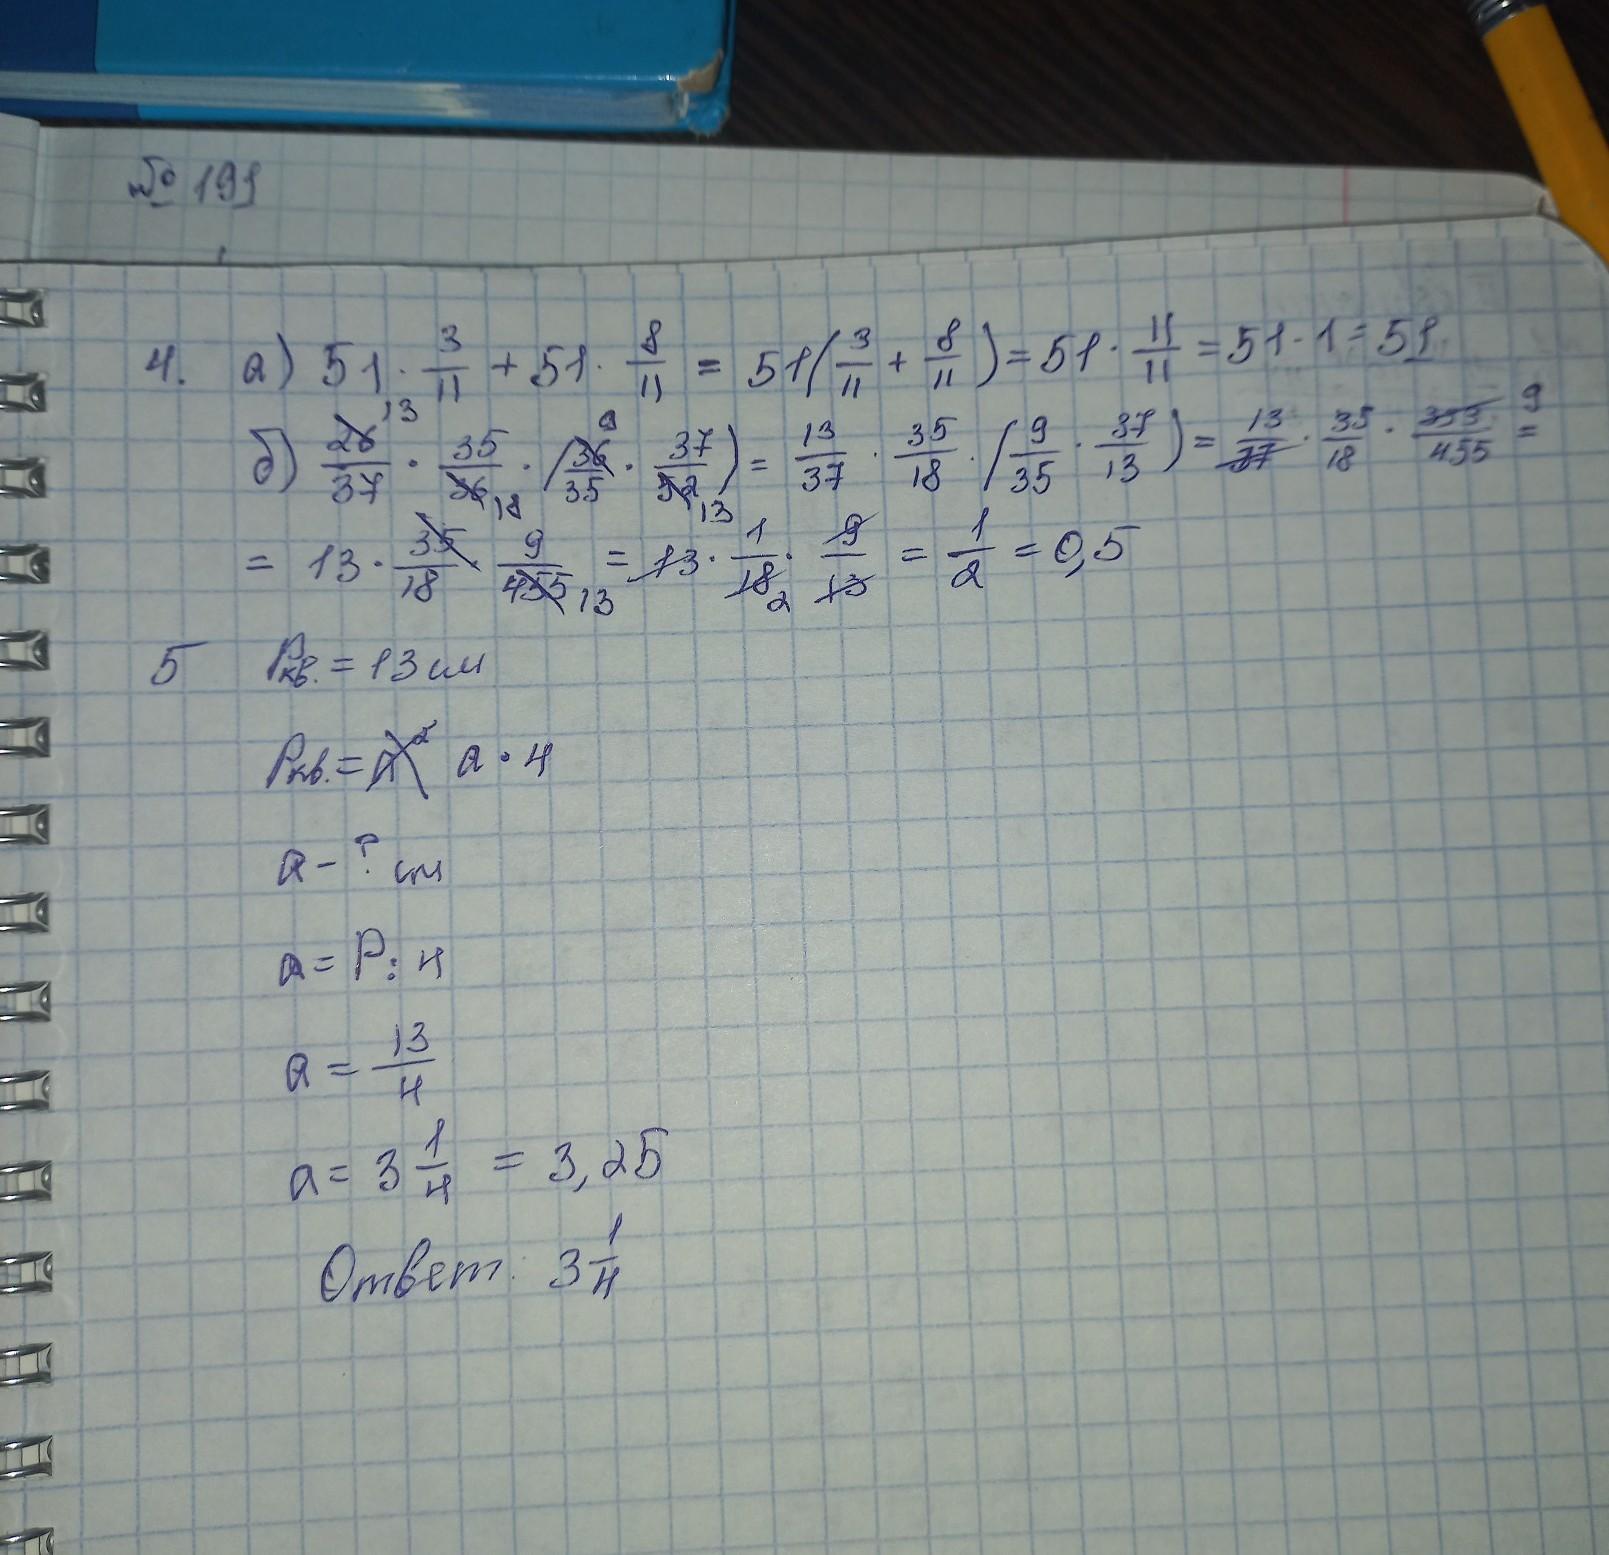 № 191
4. а) 51 · 3/11 + 51 · 8/11 = 51(3/11 + 8/11) = 51 · 11/11 = 51 · 1 = 51
б) 26/37 13 · 35/36 18 · (36/35 9 · 37/52 13) = 13/37 · 35/18 · (9/35 · 37/13) = 13/37 · 35/18 · 333/455 9 =
= 13 · 35/18 · 9/455 13 = 13 · 1/18 2 · 9/13 = 1/2 = 0,5
5 Pкв. = 13 см
Pкв. = a² a · 4
a - ? см
a = P : 4
a = 13/4
a = 3 1/4 = 3,25
Ответ: 3 1/4